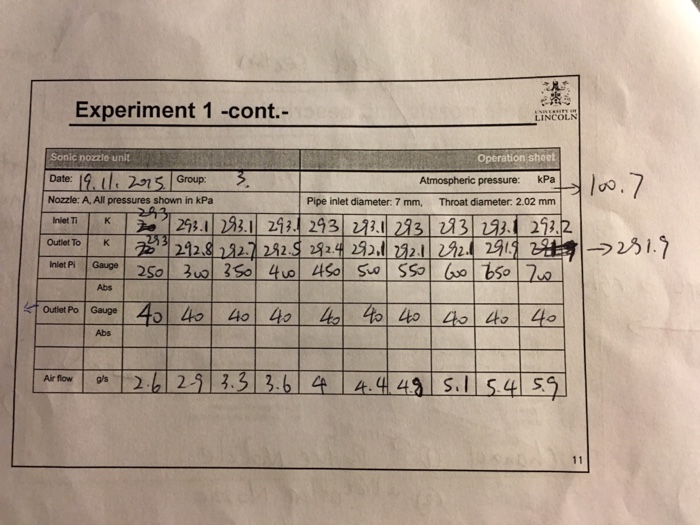 Experiment 1 -cont.-
UNIVERSITY OF
LINCOLN
Sonic nozzle unit Operation sheet
Date: 19.11.2015 Group: 3. Atmospheric pressure: kPa → 100.7
Nozzle: A, All pressures shown in kPa Pipe inlet diameter: 7 mm, Throat diameter: 2.02 mm
Inlet Ti K 293 293.1 293.1 293.1 293 293.1 293 293 293.1 293.2
Outlet To K 293 292.8 292.7 292.5 292.4 292.1 292.1 292.1 291.9 → 291.9
Inlet Pi Gauge 250 300 350 400 450 500 550 600 650 700
Abs
Outlet Po Gauge 40 40 40 40 40 40 40 40 40 40
Abs
Air flow g/s 2.6 2.9 3.3 3.6 4 4.4 4.8 5.1 5.4 5.9
11